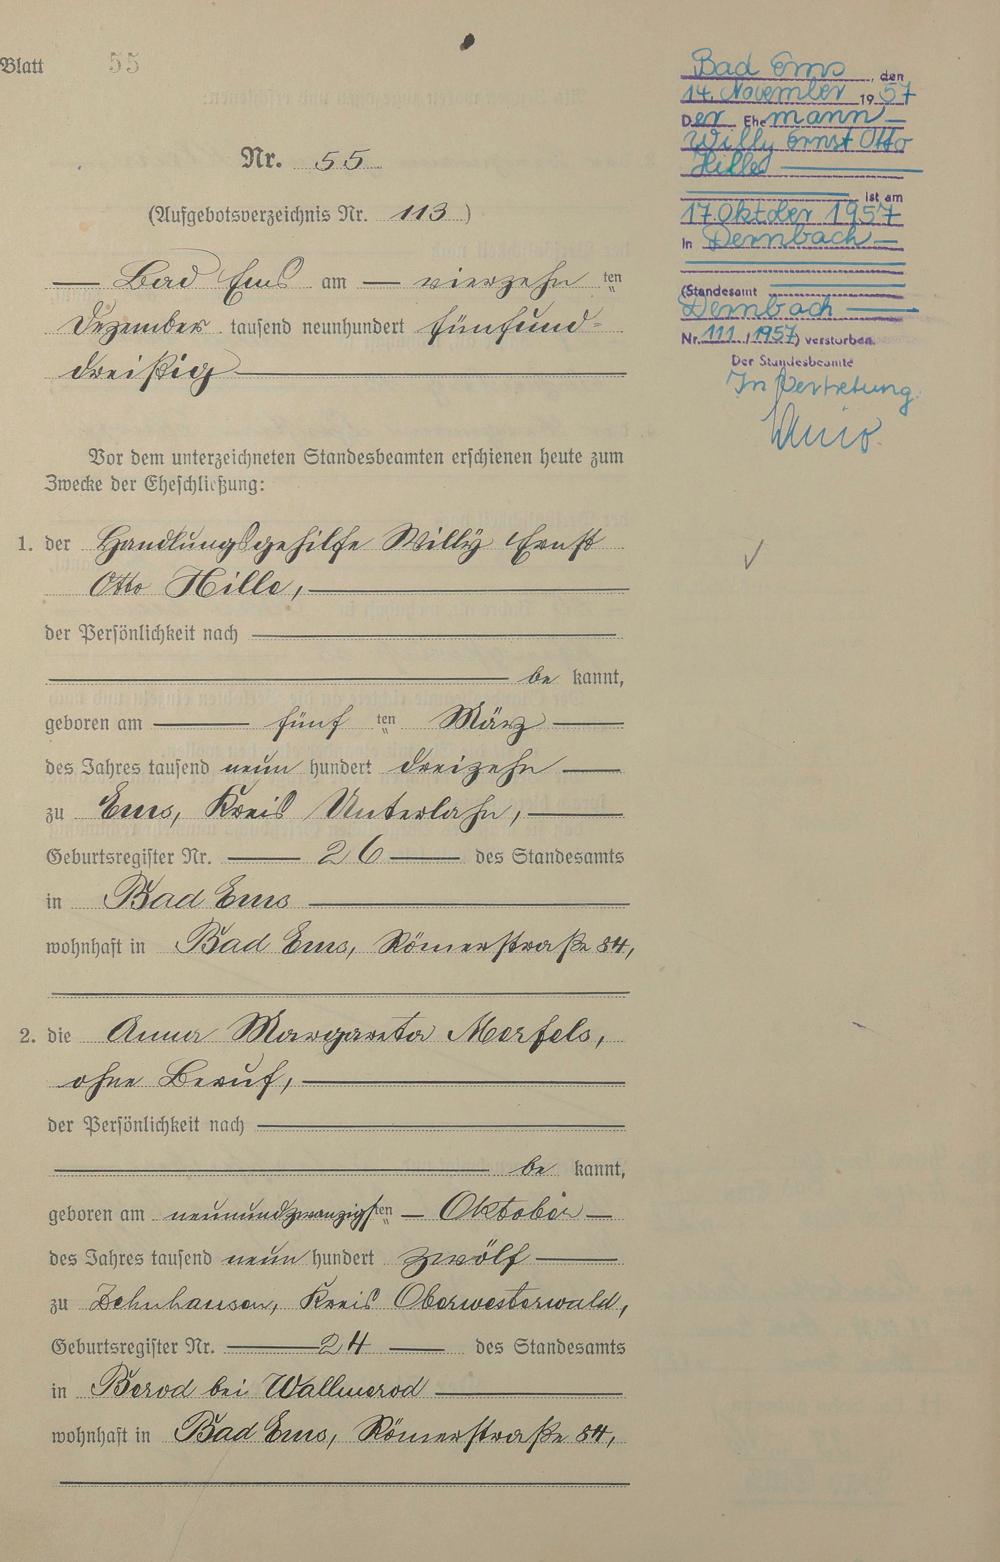 Blatt 55
Nr. 55
(Aufgebotsverzeichnis Nr. 113)
Bad Ems am vierzehn ten
Dezember tausend neunhundert fünfund-
dreißig
Vor dem unterzeichneten Standesbeamten erschienen heute zum
Zwecke der Eheschließung:
1. der Handlungsgehilfe Willy Ernst
Otto Hille,
der Persönlichkeit nach
be kannt,
geboren am fünf ten März
des Jahres tausend neun hundert dreizehn
zu Ems, Kreis Unterlahn,
Geburtsregister Nr. 26 des Standesamts
in Bad Ems
wohnhaft in Bad Ems, Römerstraße 84,
2. die Anna Margareta Merfels,
ohne Beruf,
der Persönlichkeit nach
be kannt,
geboren am neunundzwanzigsten Oktober
des Jahres tausend neun hundert zwölf
zu Zehnhausen, Kreis Oberwesterwald,
Geburtsregister Nr. 24 des Standesamts
in Berod bei Wallmerod
wohnhaft in Bad Ems, Römerstraße 84,
Bad Ems, den
14. November 1957
Der Ehemann
Willy Ernst Otto
Hille
ist am
17. Oktober 1957
in Dernbach
(Standesamt
Dernbach
Nr. 111/1957) verstorben.
Der Standesbeamte
In Vertretung